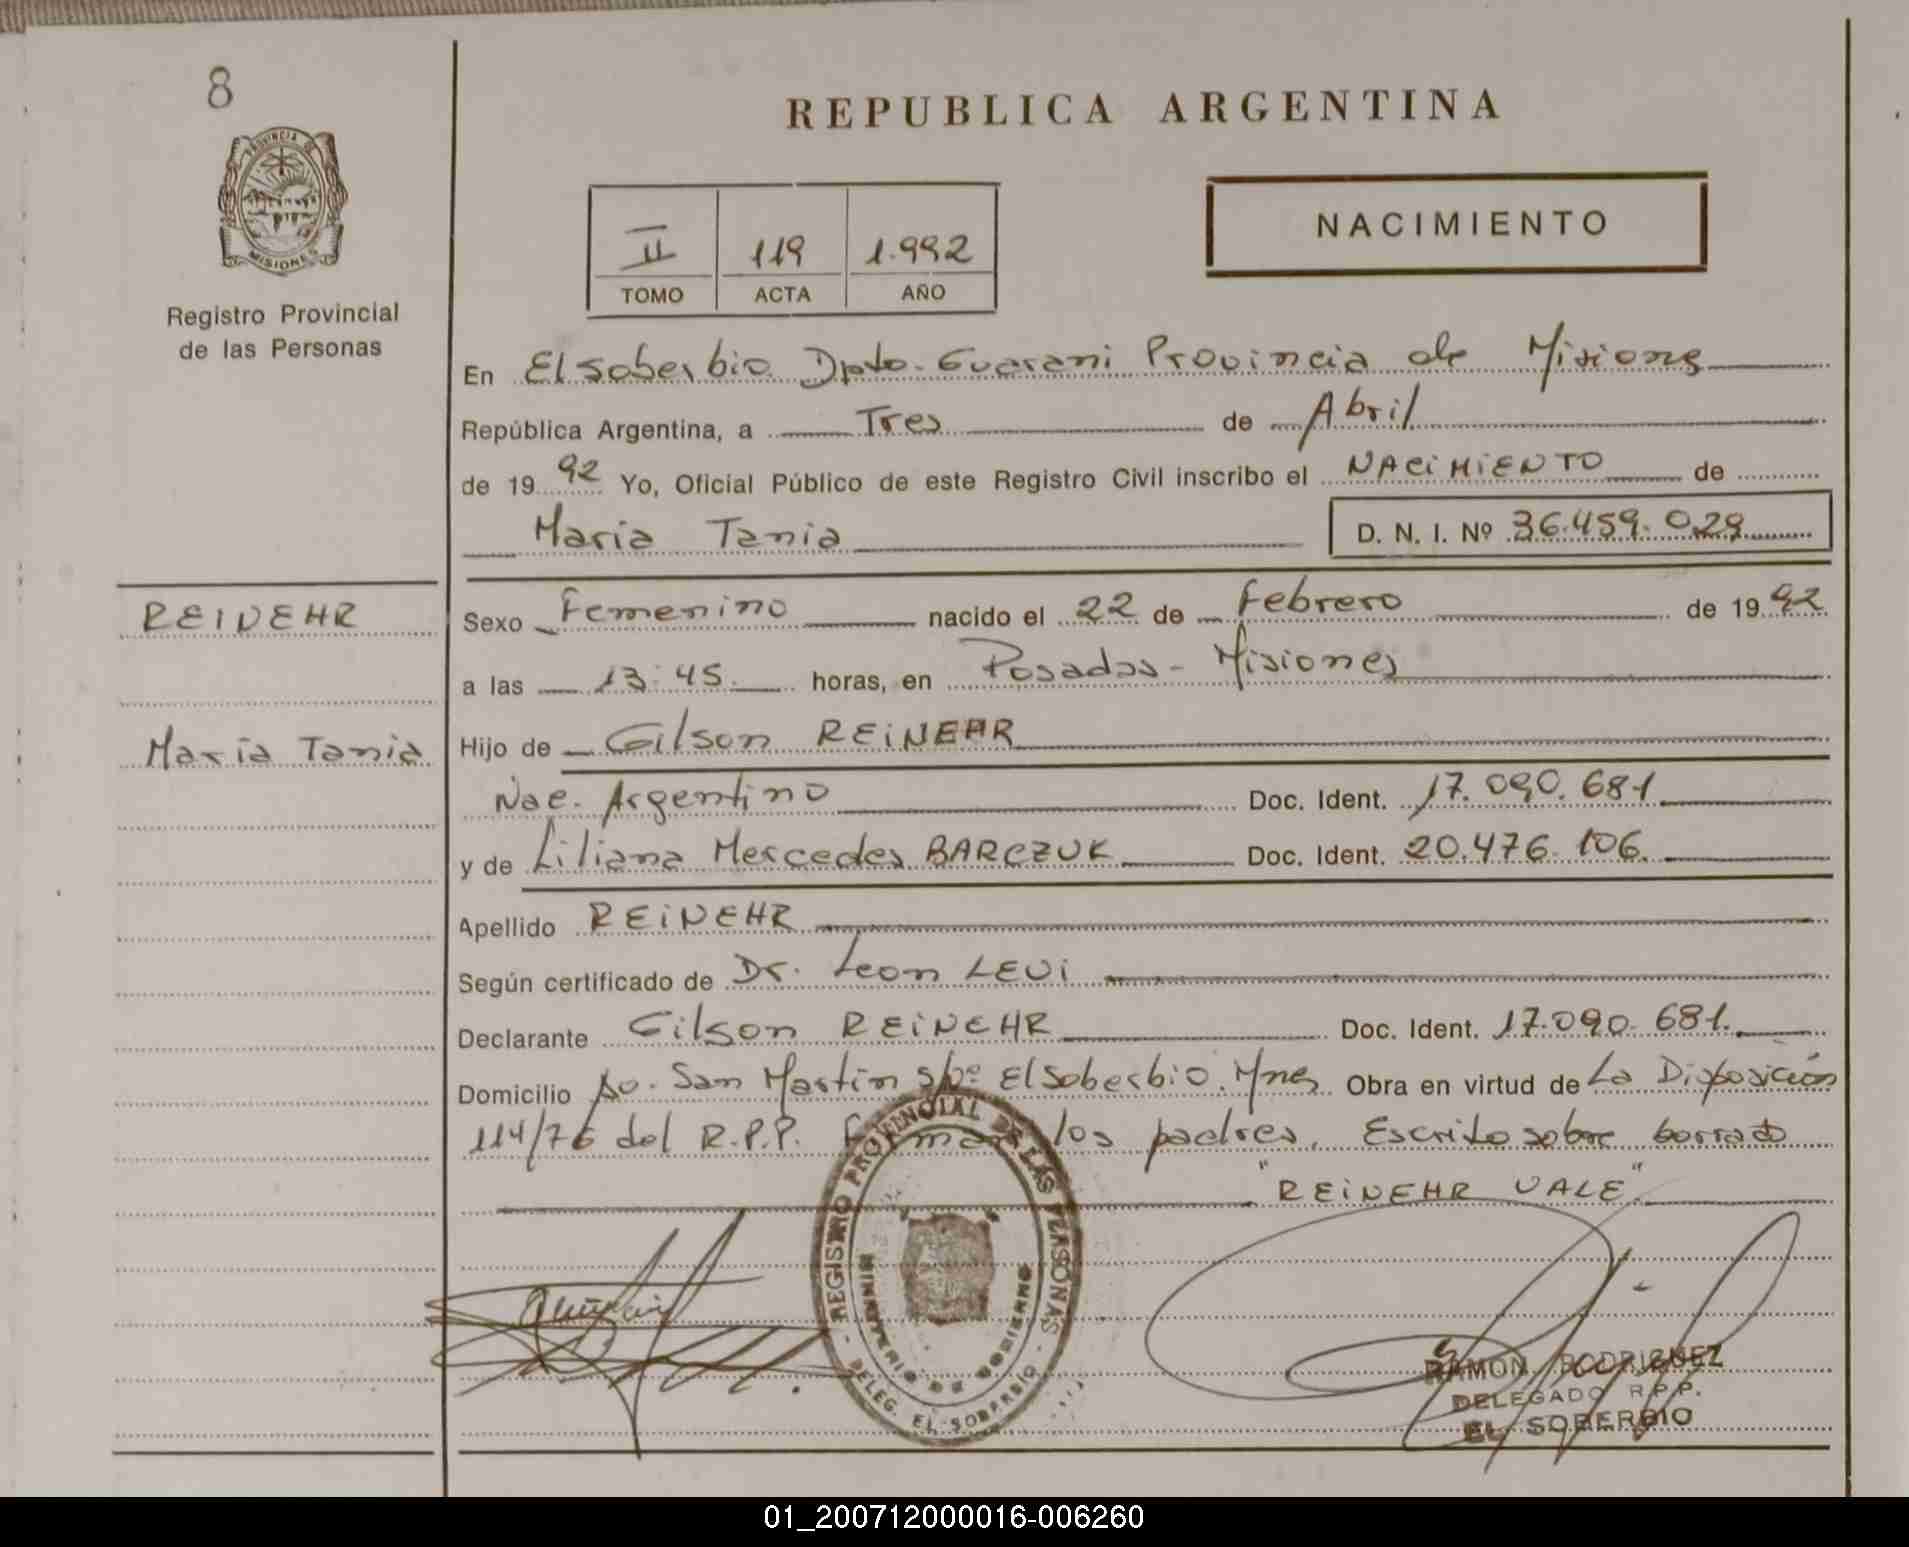 8
PROVINCIA DE
MISIONES
Registro Provincial
de las Personas
REINEHR
María Tania
REPUBLICA ARGENTINA
II 119 1.992
TOMO ACTA AÑO
NACIMIENTO
En El Soberbio Dpto. Guarani Provincia de Misiones
República Argentina, a Tres de Abril
de 1992 Yo, Oficial Público de este Registro Civil inscribo el NACIMIENTO de
María Tania D. N. I. Nº 36.459.029
Sexo Femenino nacido el 22 de Febrero de 1992
a las 13:45 horas, en Posadas - Misiones
Hijo de Gilson REINEHR
Nac. Argentino Doc. Ident. 17.090.681
y de Liliana Mercedes BARCZUK Doc. Ident. 20.476.106.
Apellido REINEHR
Según certificado de Dr. Leon LEVI
Declarante Gilson REINEHR Doc. Ident. 17.090.681.
Domicilio Av. San Martín s/nº El Soberbio. Mnes Obra en virtud de La Disposición
114/76 del R.P.P. Firman los padres. Escrito sobre borrado
"REINEHR VALE"
REGISTRO PROVINCIAL DE LAS PERSONAS
MINISTERIO DE GOBIERNO
DELEG. EL SOBERBIO
RAMON RODRIGUEZ
DELEGADO R.P.P.
EL SOBERBIO
01_200712000016-006260